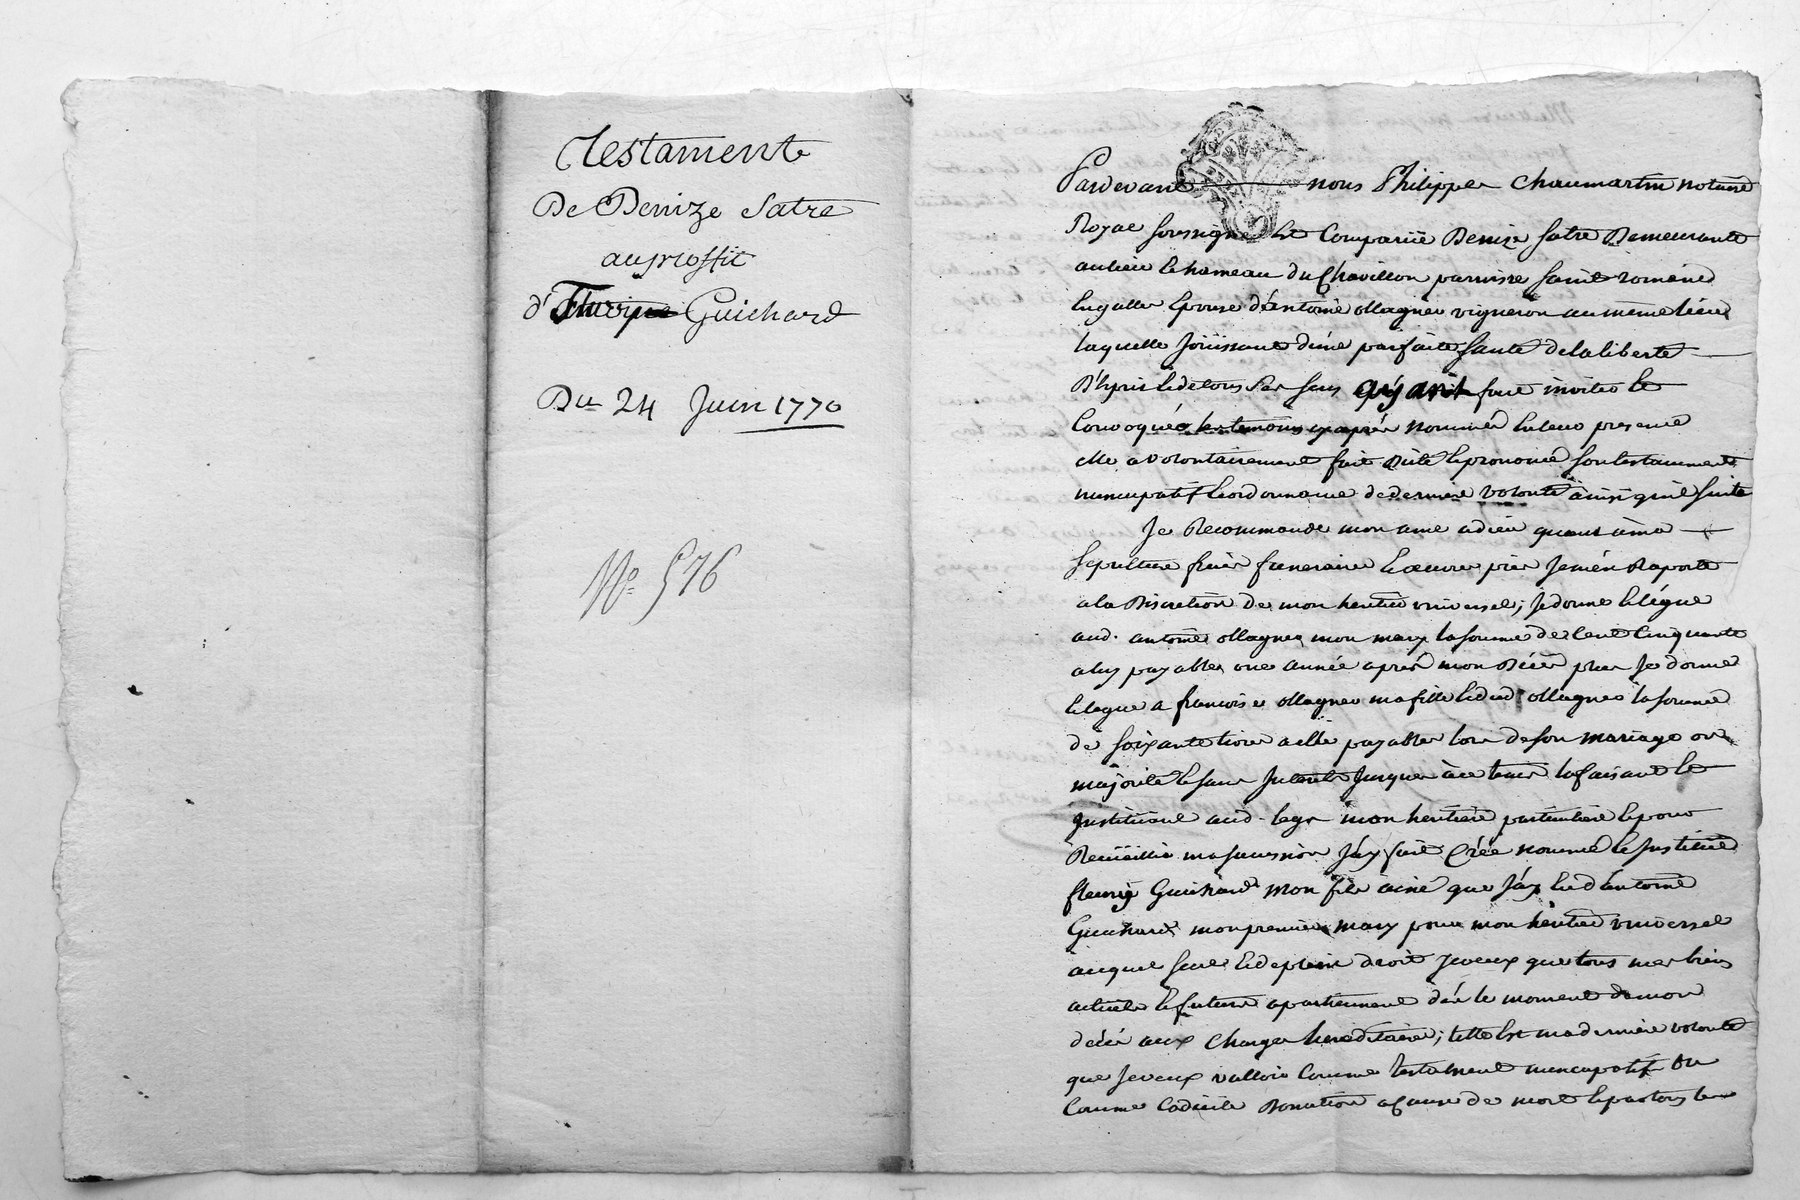 Testament
De Denize Satre
au proffit
d' Fleurye Guichard
Du 24 Juin 1770
No. 576
Pardevant nous Philippe Chaumartin notaire
Royal soussigné Est Comparüe Denize Satre Demeurante
au lieu et hameau du Chavillon parroisse saint romain
En gallee Epouse d'antoine ollagner vigneron au meme lieu
laquelle Joüissant d'une parfaite santé de la liberté
D'esprit Et de tous ses sens ayant fait inviter Et
Convoquér les temoins cy aprés nommés En leur presence
elle a volontairement fait dicté Et prononcé son testamment
nuncupatif Et ordonnance de derniere volonté ainsi qu'il suit
Je Recommande mon ame a dieu quant a ma
sepulture frais funeraires Et oeuvres pies Je m'en Raporte
a la Discretion de mon heritier universel; Je donne Et légue
aud. antoine ollagner mon mary la somme de Cent Cinquante
a luy payable une année aprés mon Décés plus Je donne
Et legue a francoise ollagner ma fille Et dud ollagner la somme
de soixante livres a elle payable lors de son mariage ou
majorité Et sans Interets Jusques a ce tems la faisant Et
Instituant aud. legs mon heritiere particuliere Et pour
Recüeillir ma succession J'ay fait Créé nommé Et Institué
fleury Guichard mon fils ainé que J'ay Eu d'antoine
Guichard mon premier mary pour mon heritier universel
auquel seul Et de plein droit Je veux que tous mes biens
actuels Et futurs apartiennent dés le moment de mon
décés aux Charges hereditaires; telle Est ma derniere volonté
que Je veux valloir Comme testament nuncupatif ou
Comme Codicile Donation a Cause de mort Et par tous les